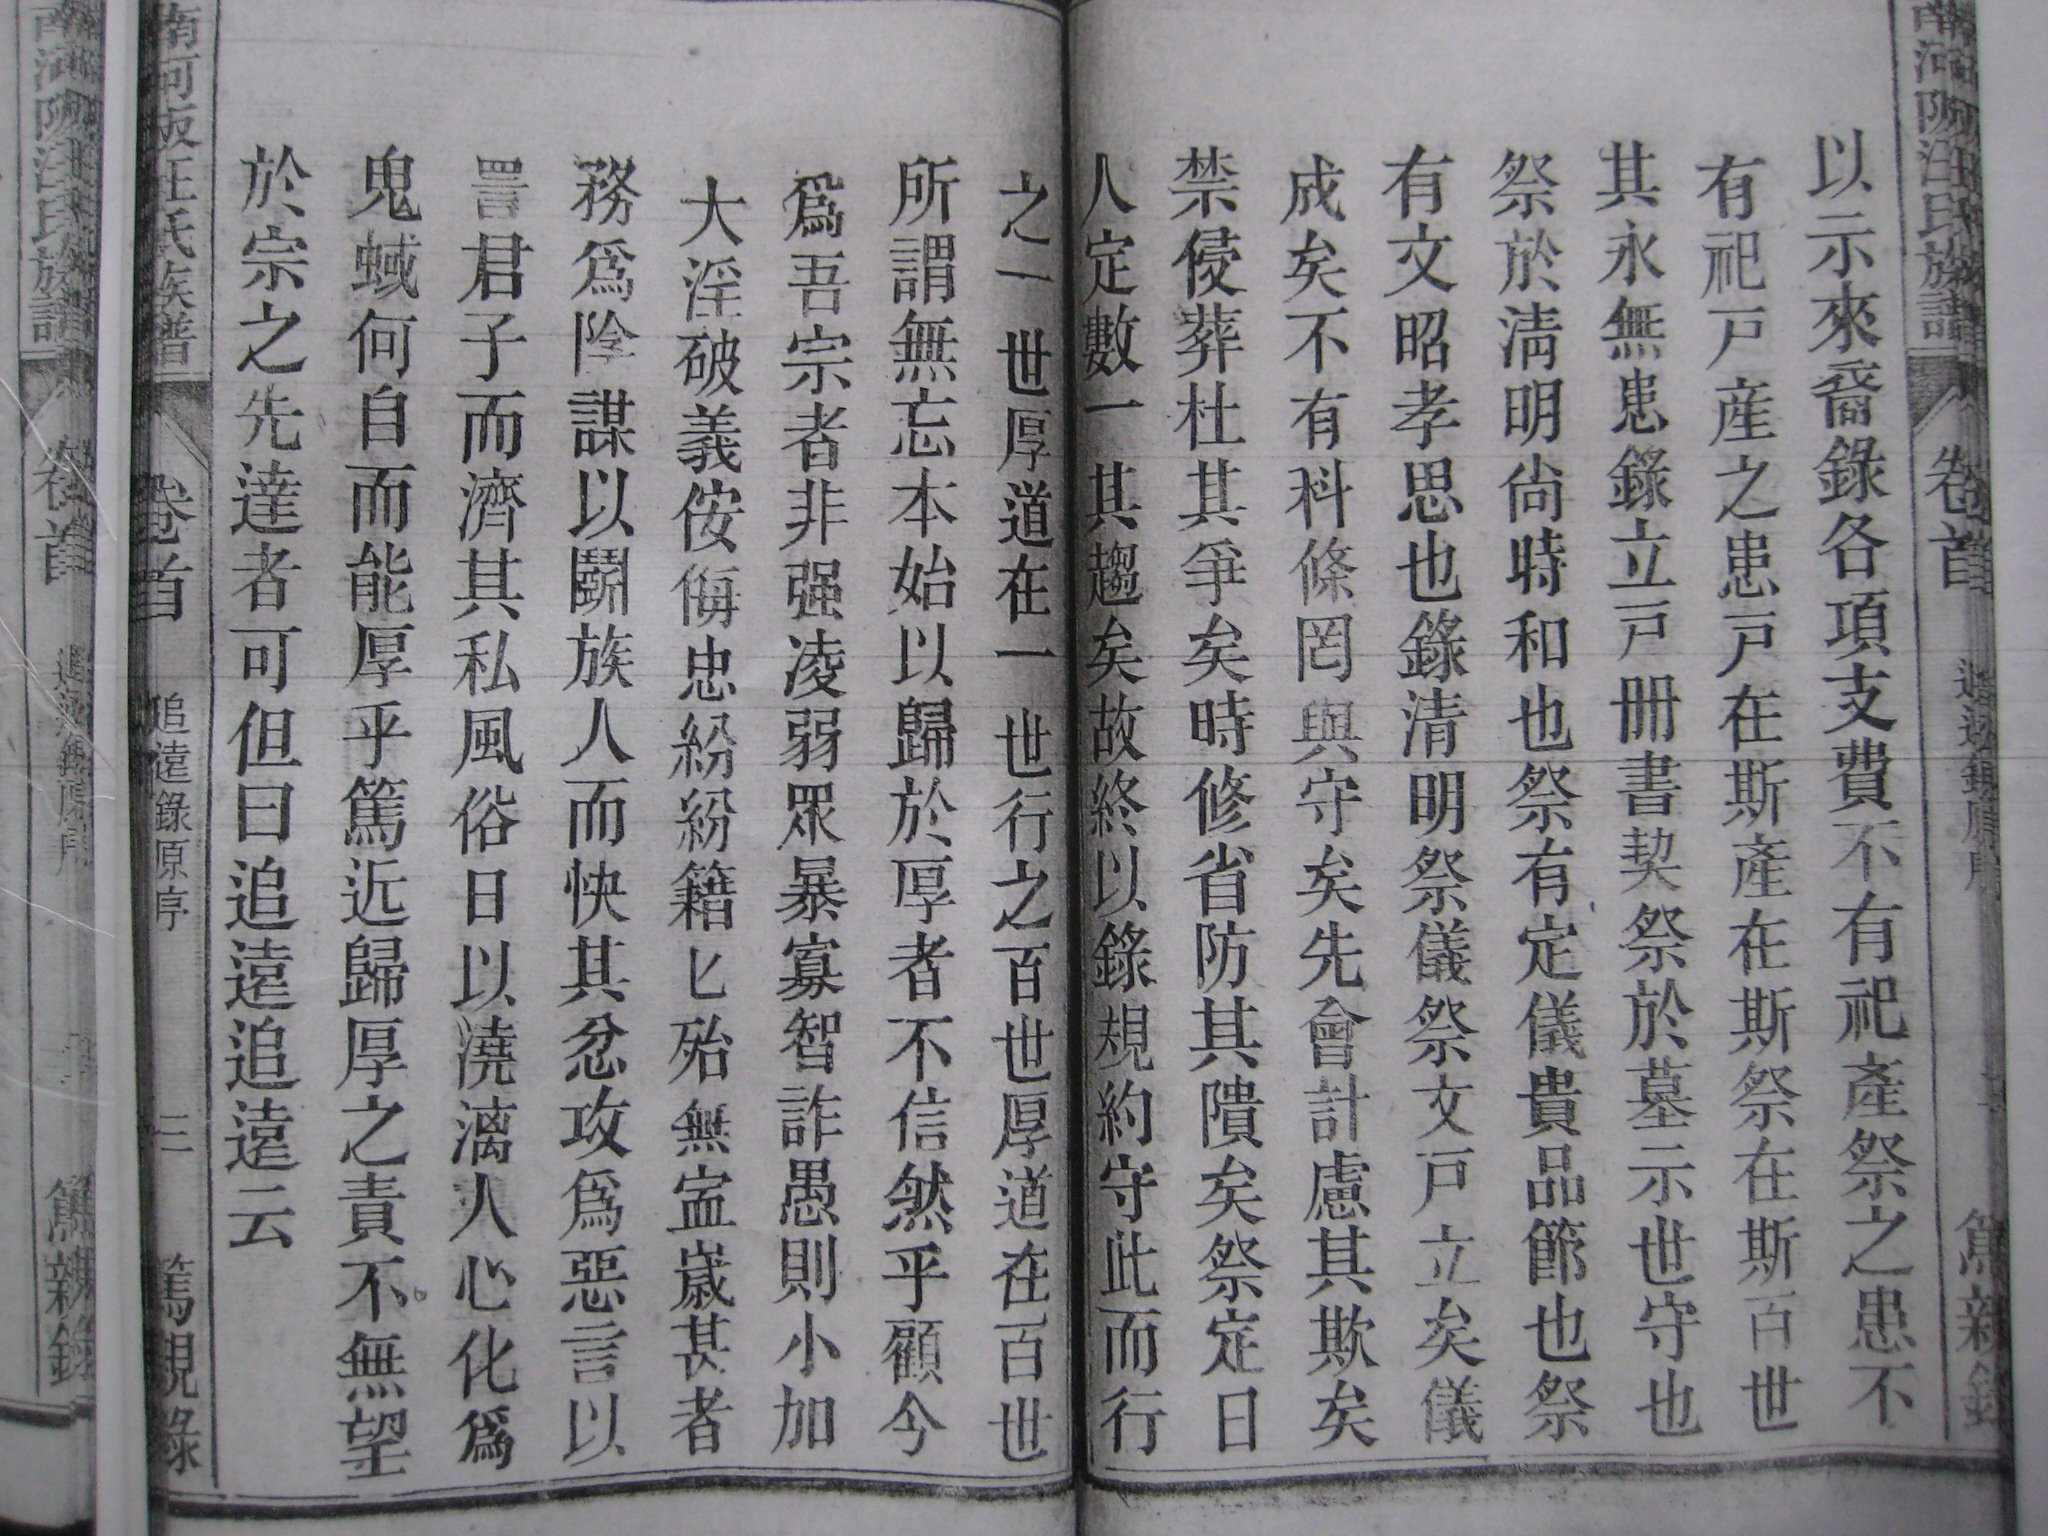 以示來裔錄各項支費不有祀產祭之患不
有祀戸產之患戸在斯產在斯祭在斯百世
其永無患錄立戸冊書契祭於墓示世守也
祭於清明尙時和也祭有定儀貴品節也祭
有文昭孝思也錄清明祭儀祭文戸立矣儀
成矣不有科條罔與守矣先會計慮其欺矣
禁侵葬杜其爭矣時修省防其隤矣祭定日
人定數一其趨矣故終以錄規約守此而行
之一世厚道在一世行之百世厚道在百世
所謂無忘本始以歸於厚者不信然乎顧今
爲吾宗者非强凌弱眾暴寡智詐愚則小加
大淫破義侒侮忠紛紛籍匕殆無寍歲甚者
務爲陰謀以鬭族人而快其忿攻爲惡言以
詈君子而濟其私風俗日以澆漓人心化爲
鬼蜮何自而能厚乎篤近歸厚之責不無望
於宗之先達者可但曰追遠追遠云
南河阪汪氏族譜
卷首
追遠錄原序
三
篤親錄